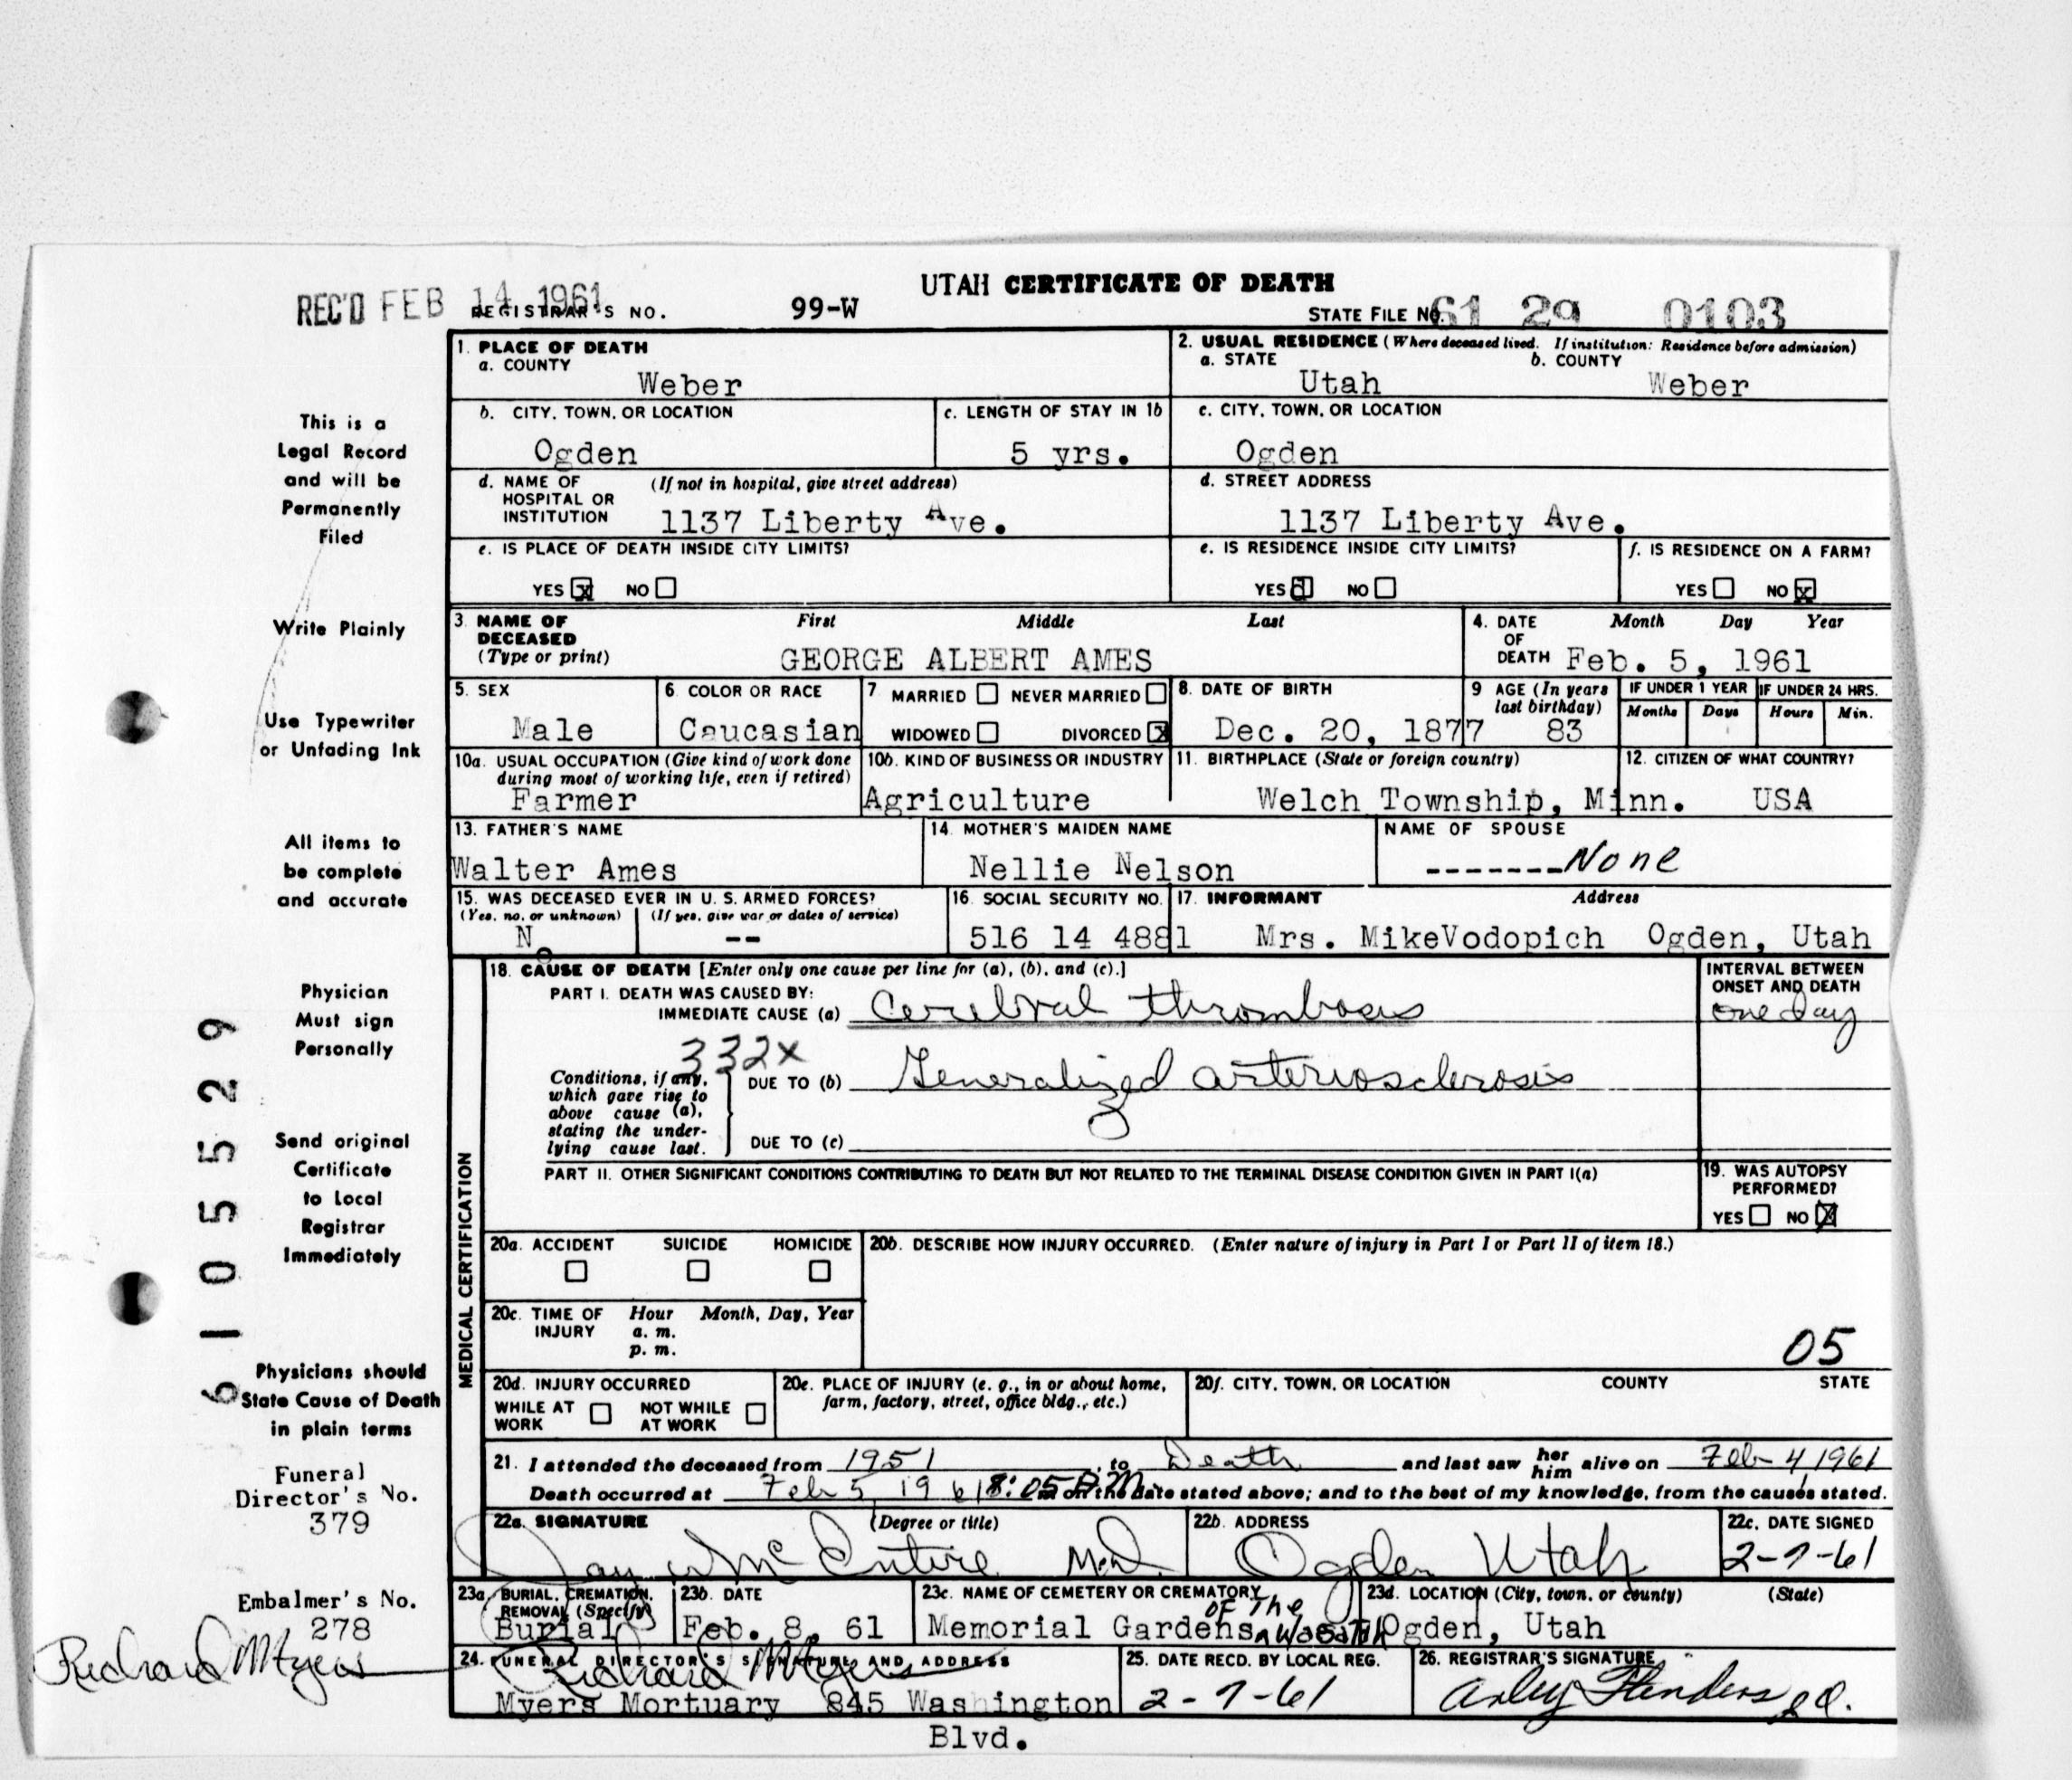 UTAH CERTIFICATE OF DEATH
REC'D FEB 14 1961 REGISTRAR'S NO. 99-W STATE FILE NO. 61 29 0103
1. PLACE OF DEATH
a. COUNTY
Weber
2. USUAL RESIDENCE (Where deceased lived. If institution: Residence before admission)
a. STATE b. COUNTY
Utah Weber
b. CITY, TOWN, OR LOCATION
Ogden
c. LENGTH OF STAY IN 1b
5 yrs.
c. CITY, TOWN, OR LOCATION
Ogden
d. NAME OF (If not in hospital, give street address)
HOSPITAL OR
INSTITUTION 1137 Liberty Ave.
d. STREET ADDRESS
1137 Liberty Ave.
e. IS PLACE OF DEATH INSIDE CITY LIMITS?
YES x NO
e. IS RESIDENCE INSIDE CITY LIMITS?
YES NO
f. IS RESIDENCE ON A FARM?
YES NO x
3. NAME OF First Middle Last
DECEASED
(Type or print) GEORGE ALBERT AMES
4. DATE Month Day Year
OF
DEATH Feb. 5, 1961
5. SEX
Male
6. COLOR OR RACE
Caucasian
7 MARRIED NEVER MARRIED
WIDOWED DIVORCED x
8. DATE OF BIRTH
Dec. 20, 1877
9 AGE (In years
last birthday)
83
IF UNDER 1 YEAR IF UNDER 24 HRS.
Months Days Hours Min.
10a. USUAL OCCUPATION (Give kind of work done
during most of working life, even if retired)
Farmer
10b. KIND OF BUSINESS OR INDUSTRY
Agriculture
11. BIRTHPLACE (State or foreign country)
Welch Township, Minn.
12. CITIZEN OF WHAT COUNTRY?
USA
13. FATHER'S NAME
Walter Ames
14. MOTHER'S MAIDEN NAME
Nellie Nelson
NAME OF SPOUSE
-------None
15. WAS DECEASED EVER IN U. S. ARMED FORCES?
(Yes, no, or unknown) (If yes, give war or dates of service)
No --
16. SOCIAL SECURITY NO.
516 14 4881
17. INFORMANT Address
Mrs. MikeVodopich Ogden, Utah
MEDICAL CERTIFICATION
18. CAUSE OF DEATH [Enter only one cause per line for (a), (b), and (c).]
PART I. DEATH WAS CAUSED BY:
IMMEDIATE CAUSE (a) Cerebral thrombosis
INTERVAL BETWEEN
ONSET AND DEATH
one day
332x
Conditions, if any,
which gave rise to
above cause (a),
stating the under-
lying cause last.
DUE TO (b) Generalized arteriosclerosis
DUE TO (c)
PART II. OTHER SIGNIFICANT CONDITIONS CONTRIBUTING TO DEATH BUT NOT RELATED TO THE TERMINAL DISEASE CONDITION GIVEN IN PART I(a)
19. WAS AUTOPSY
PERFORMED?
YES NO X
20a. ACCIDENT SUICIDE HOMICIDE
20b. DESCRIBE HOW INJURY OCCURRED. (Enter nature of injury in Part I or Part II of item 18.)
20c. TIME OF Hour Month, Day, Year
INJURY a. m.
p. m.
05
20d. INJURY OCCURRED
WHILE AT NOT WHILE
WORK AT WORK
20e. PLACE OF INJURY (e. g., in or about home,
farm, factory, street, office bldg., etc.)
20f. CITY, TOWN, OR LOCATION COUNTY STATE
21. I attended the deceased from 1951, to Death and last saw her him alive on Feb 4, 1961
Death occurred at Feb 5, 1961 8:05 P.M. m on the date stated above; and to the best of my knowledge, from the causes stated.
22a. SIGNATURE (Degree or title)
Jay W McEntire M.D.
22b. ADDRESS
Ogden Utah
22c. DATE SIGNED
2-7-61
23a. BURIAL, CREMATION,
REMOVAL (Specify)
Burial
23b. DATE
Feb. 8, 61
23c. NAME OF CEMETERY OR CREMATORY
Memorial Gardens, of The Wasatch
23d. LOCATION (City, town, or county) (State)
Ogden, Utah
24. FUNERAL DIRECTOR'S SIGNATURE AND ADDRESS
Richard Myers
Myers Mortuary 845 Washington
Blvd.
25. DATE RECD. BY LOCAL REG.
2-7-61
26. REGISTRAR'S SIGNATURE
Arley Flinders
This is a
Legal Record
and will be
Permanently
Filed
Write Plainly
Use Typewriter
or Unfading Ink
All items to
be complete
and accurate
Physician
Must sign
Personally
Send original
Certificate
to Local
Registrar
Immediately
Physicians should
State Cause of Death
in plain terms
Funeral
Director's No.
379
Embalmer's No.
278
Richard Myers
6105529